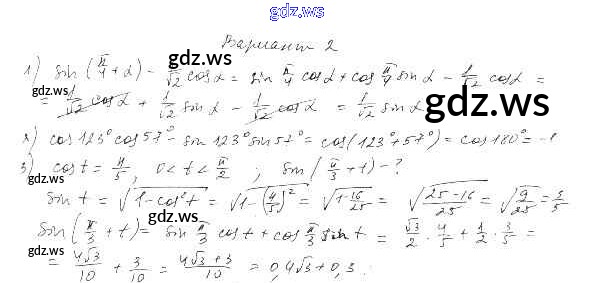 gdz.ws
Вариант 2
gdz.ws
1) sin(π/4 + α) - 1/√2 cos α = sin π/4 cos α + cos π/4 sin α - 1/√2 cos α =
gdz.ws
= 1/√2 cos α + 1/√2 sin α - 1/√2 cos α = 1/√2 sin α
gdz.ws
2) cos 123° cos 57° - sin 123° sin 57° = cos(123° + 57°) = cos 180° = -1
3) cos t = 4/5, 0 < t < π/2 ; sin(π/3 + t) - ?
gdz.ws
sin t = √(1 - cos² t) = √(1 - (4/5)²) = √(1 - 16/25) = √((25 - 16)/25) = √(9/25) = 3/5
gdz.ws gdz.ws
sin(π/3 + t) = sin π/3 cos t + cos π/3 sin t = √3/2 · 4/5 + 1/2 · 3/5 =
gdz.ws
= 4√3/10 + 3/10 = (4√3 + 3)/10 = 0,4√3 + 0,3.
gdz.ws